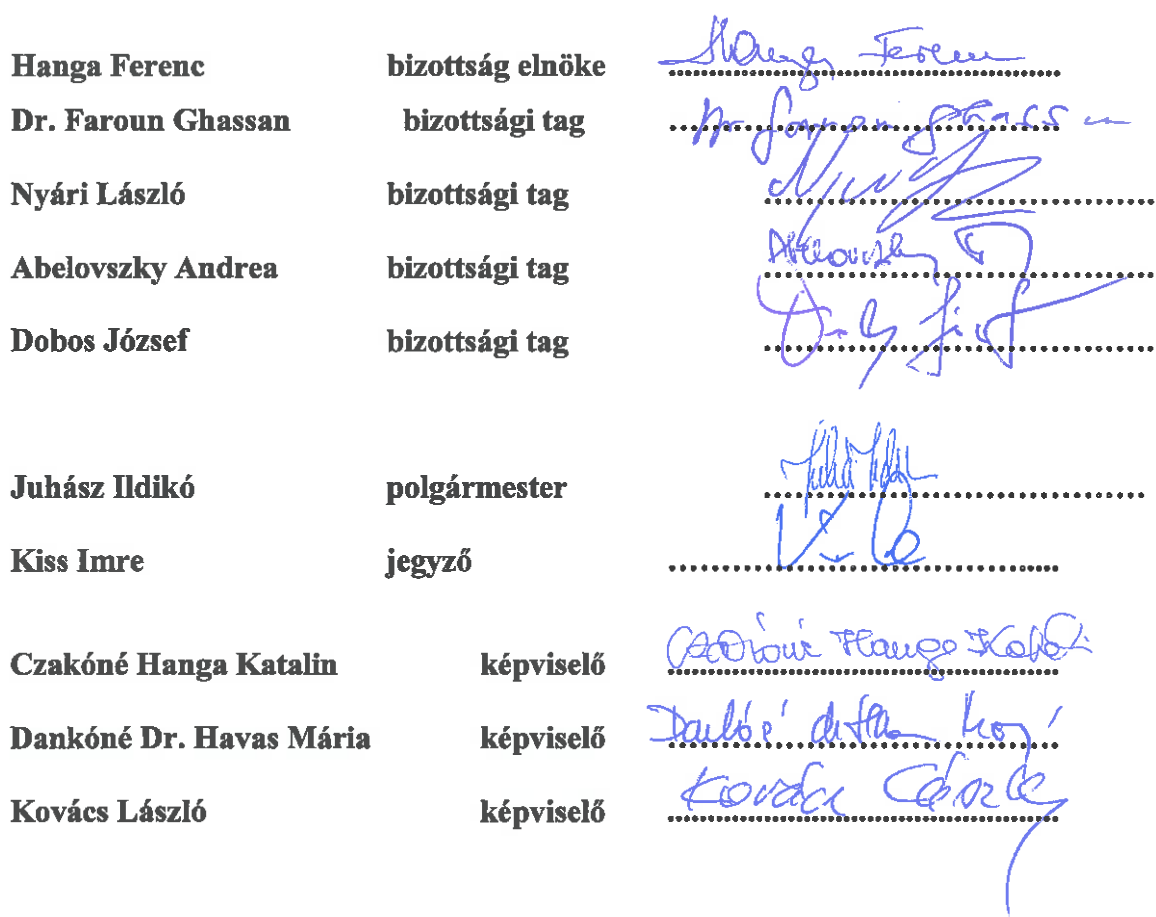 Hanga Ferenc bizottság elnöke Hanga Ferenc
Dr. Faroun Ghassan bizottsági tag Dr Faroun Ghassan
Nyári László bizottsági tag
Abelovszky Andrea bizottsági tag Abelovszky
Dobos József bizottsági tag
Juhász Ildikó polgármester
Kiss Imre jegyző
Czakóné Hanga Katalin képviselő Czakóné Hanga Katalin
Dankóné Dr. Havas Mária képviselő
Kovács László képviselő Kovács László